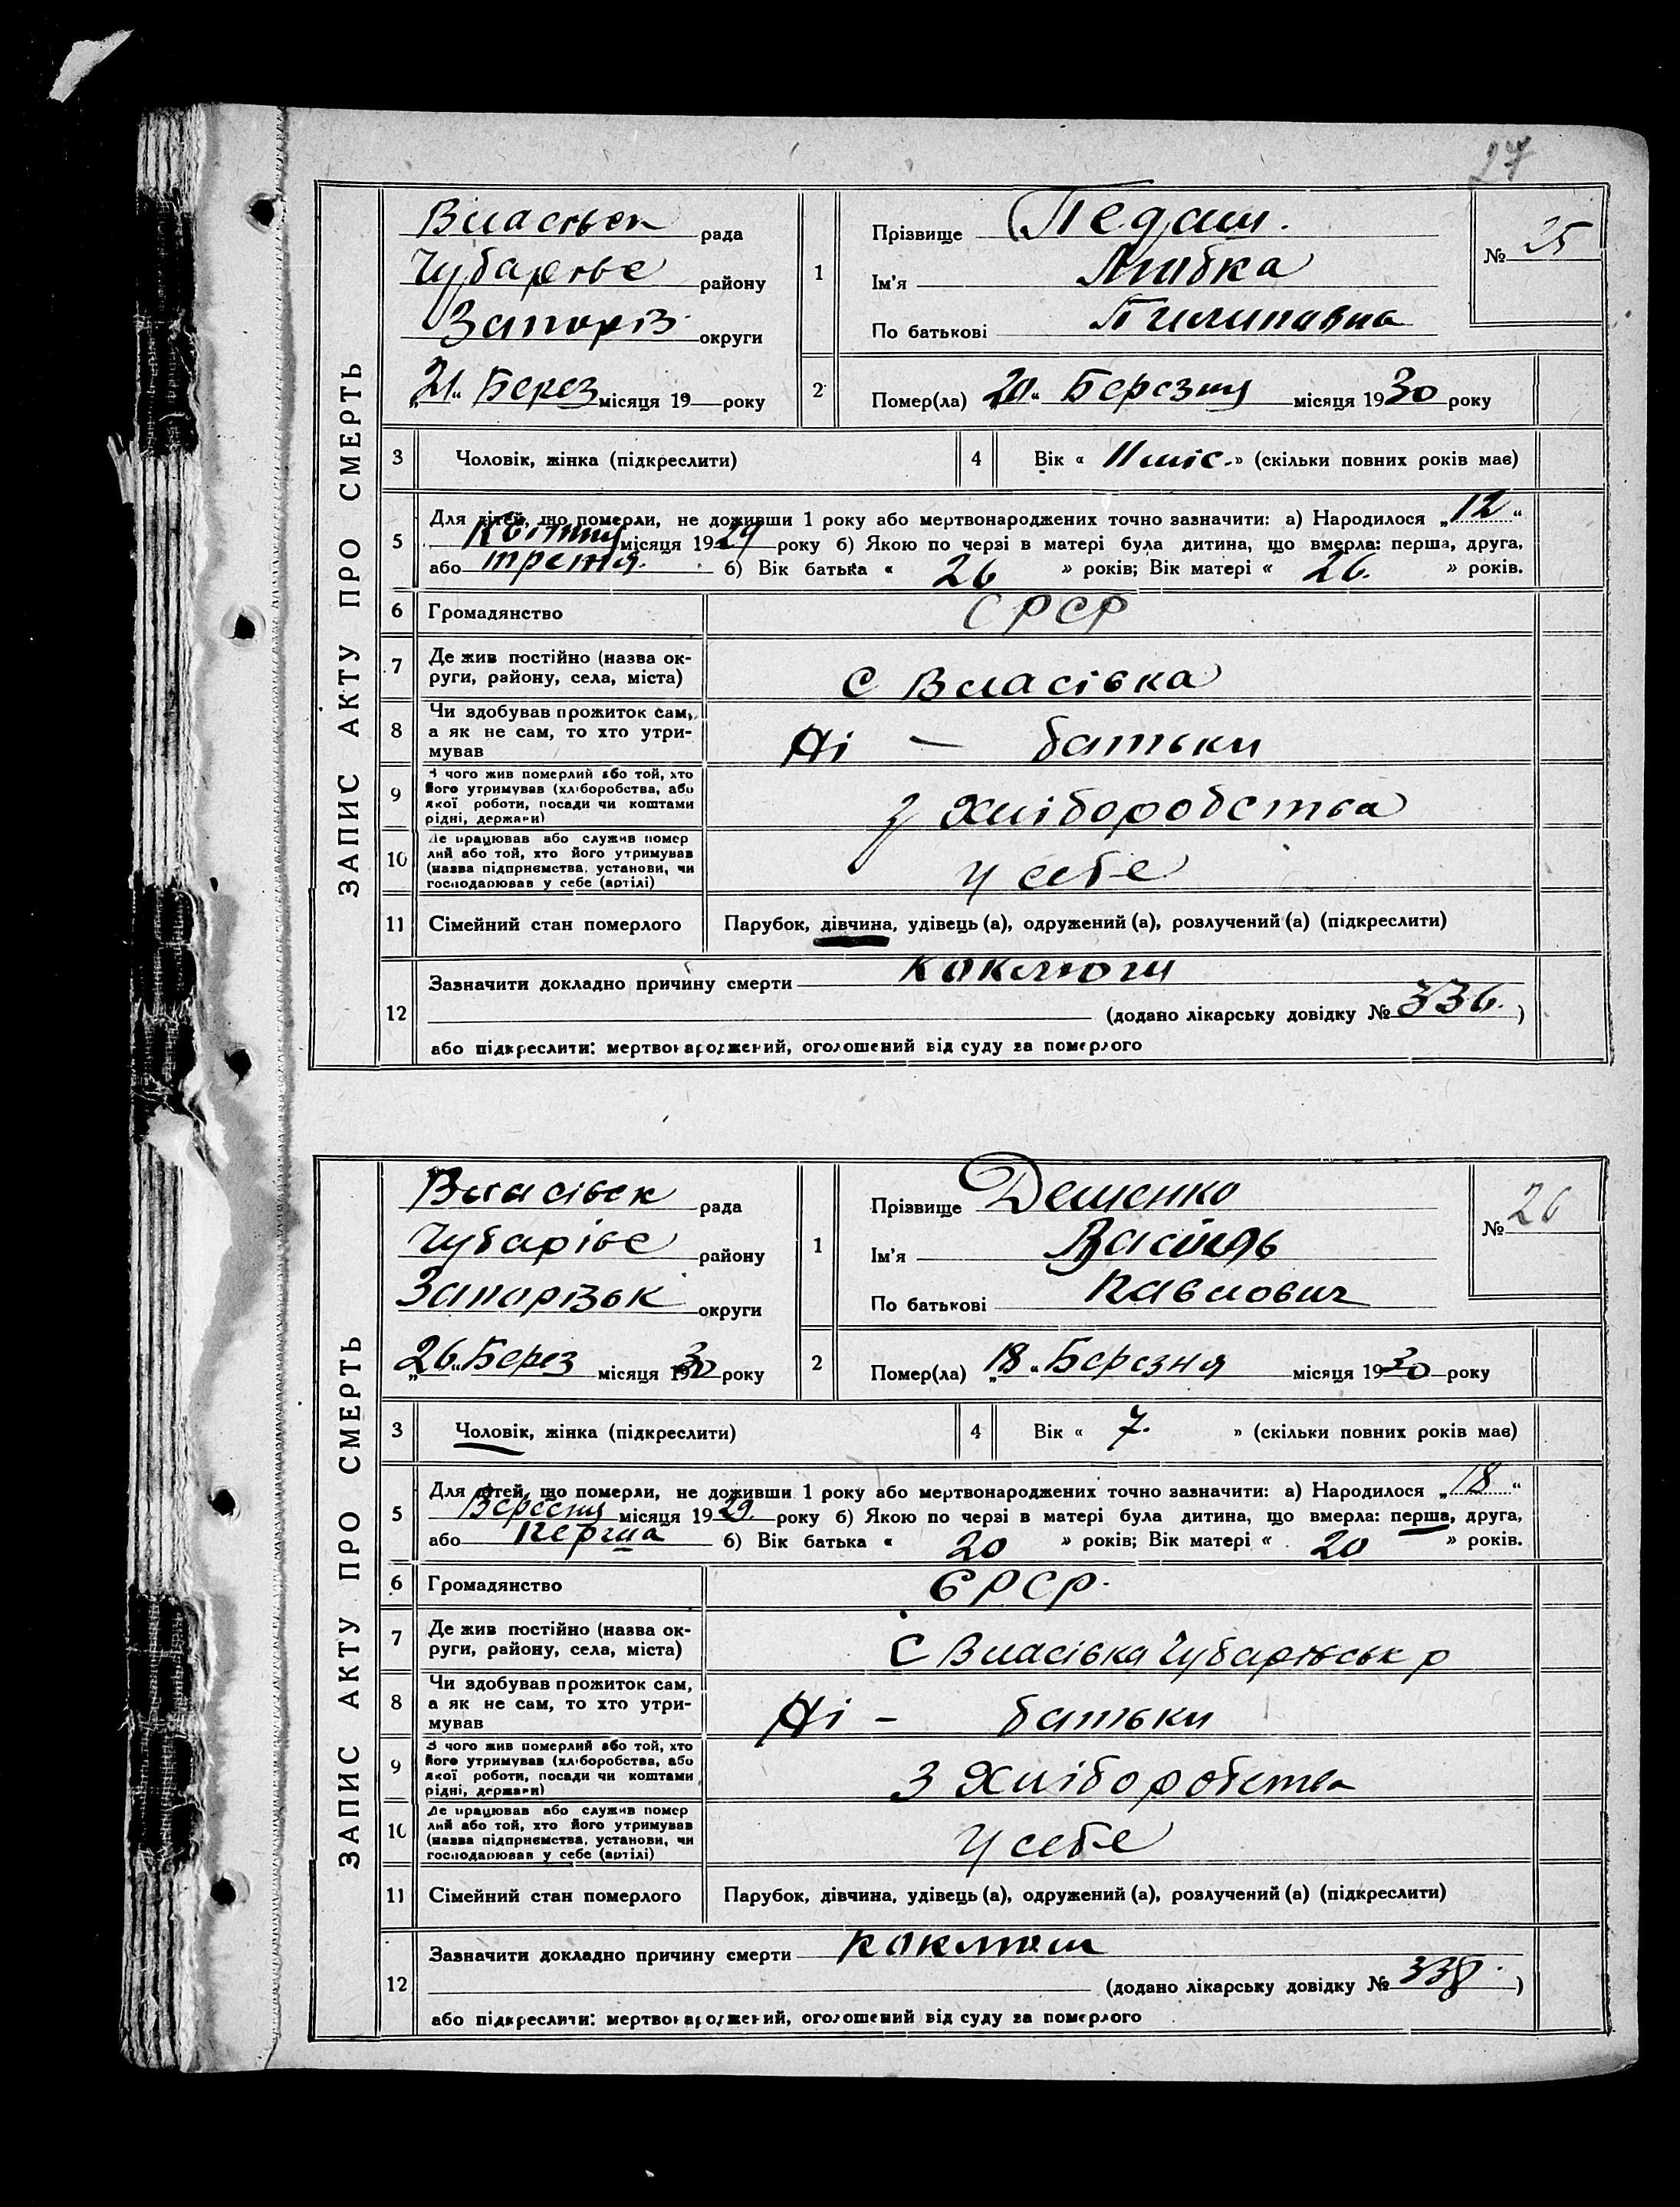 27
ЗАПИС АКТУ ПРО СМЕРТЬ
Власівськ рада
Чубарівс району
Запоріз округи
„21“ Берез місяця 19 року
1
Прізвище Педаш.
Ім'я Любка
По батькові Пилипавна
№ 25
2
Помер(ла) „20“ Березня місяця 1930 року
3 Чоловік, жінка (підкреслити)
4 Вік « 11 міс. » (скільки повних років має)
5 Для дітей, що померли, не доживши 1 року або мертвонароджених точно зазначити: а) Народилося „12“
Квітня місяця 1929 року б) Якою по черзі в матері була дитина, що вмерла: перша, друга,
або третя. б) Вік батька « 26 » років; Вік матері « 26. » років.
6 Громадянство СРСР
7 Де жив постійно (назва ок-
руги, району, села, міста) С Власівка
8 Чи здобував прожиток сам,
а як не сам, то хто утри-
мував Ні — батьки
9 З чого жив померлий або той, хто
його утримував (хліборобства, або
якої роботи, посади чи коштами
рідні, держави) З Хліборобства
10 Де працював або служив помер
лий або той, хто його утримував
(назва підприємства, установи, чи
господарював у себе (артілі) У себе
11 Сімейний стан померлого Парубок, дівчина, удівець (а), одружений (а), розлучений (а) (підкреслити)
12 Зазначити докладно причину смерти коклюш
(додано лікарську довідку № 336. )
або підкреслити: мертвонароджений, оголошений від суду за померлого
ЗАПИС АКТУ ПРО СМЕРТЬ
Власівск рада
Чубарівс району
Запорізьк округи
„26“ Берез місяця 1930 року
1
Прізвище Дешенко
Ім'я Василь
По батькові Павлович
№ 26
2
Помер(ла) „18“ Березня місяця 1930 року
3 Чоловік, жінка (підкреслити)
4 Вік « 7. » (скільки повних років має)
5 Для дітей, що померли, не доживши 1 року або мертвонароджених точно зазначити: а) Народилося „18“
Вересня місяця 1929. року б) Якою по черзі в матері була дитина, що вмерла: перша, друга,
або перша б) Вік батька « 20 » років; Вік матері « 20 » років.
6 Громадянство СРСР.
7 Де жив постійно (назва ок-
руги, району, села, міста) С Власівка Чубарівськ р
8 Чи здобував прожиток сам,
а як не сам, то хто утри-
мував Ні - батьки
9 З чого жив померлий або той, хто
його утримував (хліборобства, або
якої роботи, посади чи коштами
рідні, держави) З Хліборобства
10 Де працював або служив помер
лий або той, хто його утримував
(назва підприємства, установи, чи
господарював у себе (артілі) У себе
11 Сімейний стан померлого Парубок, дівчина, удівець (а), одружений (а), розлучений (а) (підкреслити)
12 Зазначити докладно причину смерти коклюш
(додано лікарську довідку № 338. )
або підкреслити: мертвонароджений, оголошений від суду за померлого